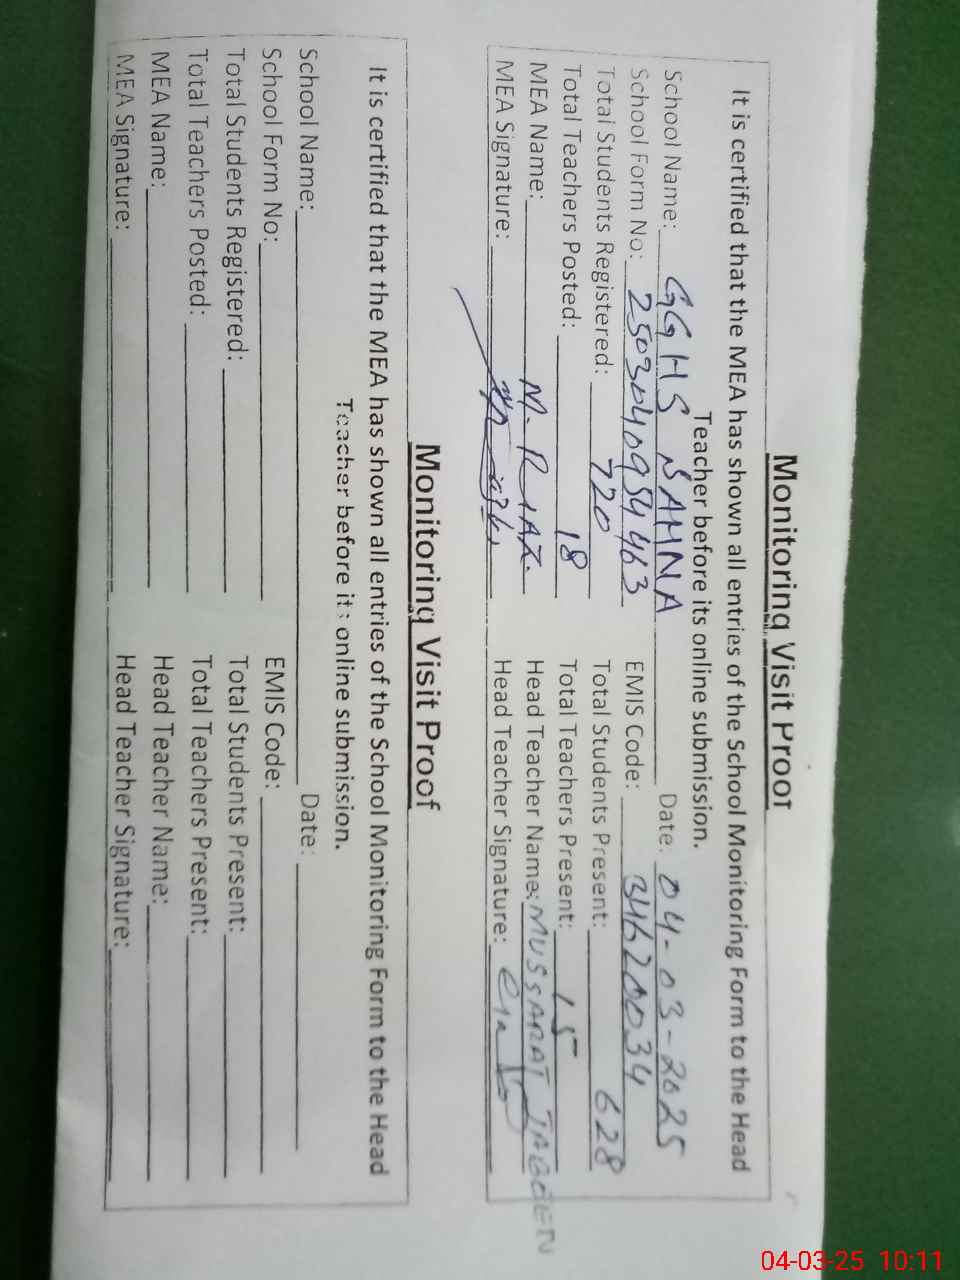 Monitoring Visit Proof
It is certified that the MEA has shown all entries of the School Monitoring Form to the Head
Teacher before its online submission.
School Name: GGHS SAHNA Date: 04-03-2025
School Form No: 2503040954463 EMIS Code: 34620034
Total Students Registered: 720 Total Students Present: 628
Total Teachers Posted: 18 Total Teachers Present: 15
MEA Name: M. RIAZ. Head Teacher Name: MUSSARAT JABEEN
MEA Signature: Head Teacher Signature:
Monitoring Visit Proof
It is certified that the MEA has shown all entries of the School Monitoring Form to the Head
Teacher before its online submission.
School Name: Date:
School Form No: EMIS Code:
Total Students Registered: Total Students Present:
Total Teachers Posted: Total Teachers Present:
MEA Name: Head Teacher Name:
MEA Signature: Head Teacher Signature:
04-03-25 10:11